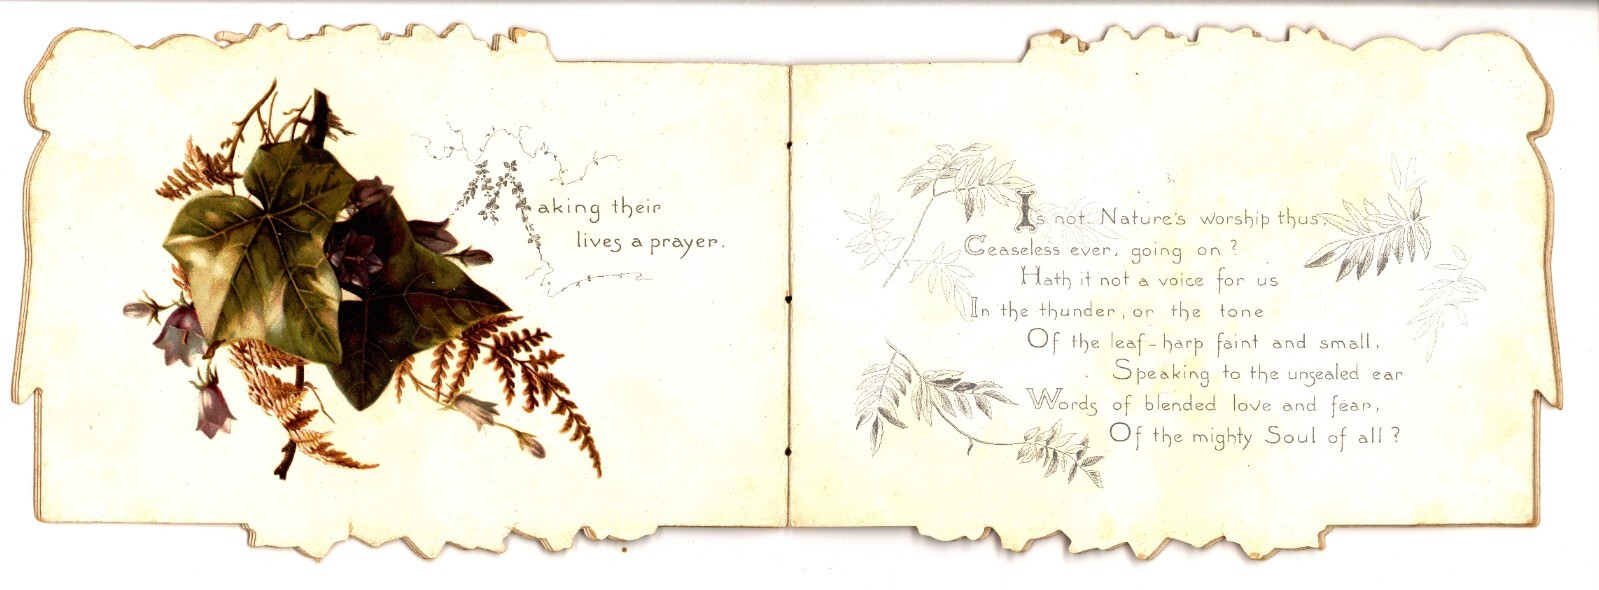 Making their
lives a prayer.
3.
Is not Nature's worship thus,
Ceaseless ever, going on?
Hath it not a voice for us
In the thunder, or the tone
Of the leaf-harp faint and small,
Speaking to the unsealed ear
Words of blended love and fear,
Of the mighty Soul of all?